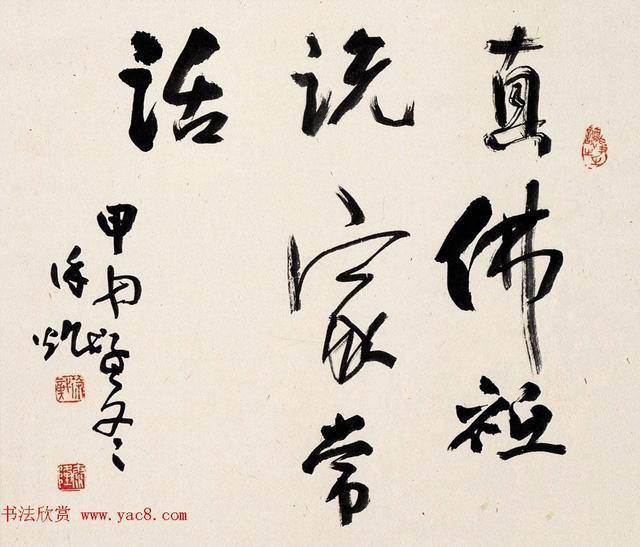 真佛祗
说家常
话
甲申冬
徐
书法欣赏 www.yac8.com